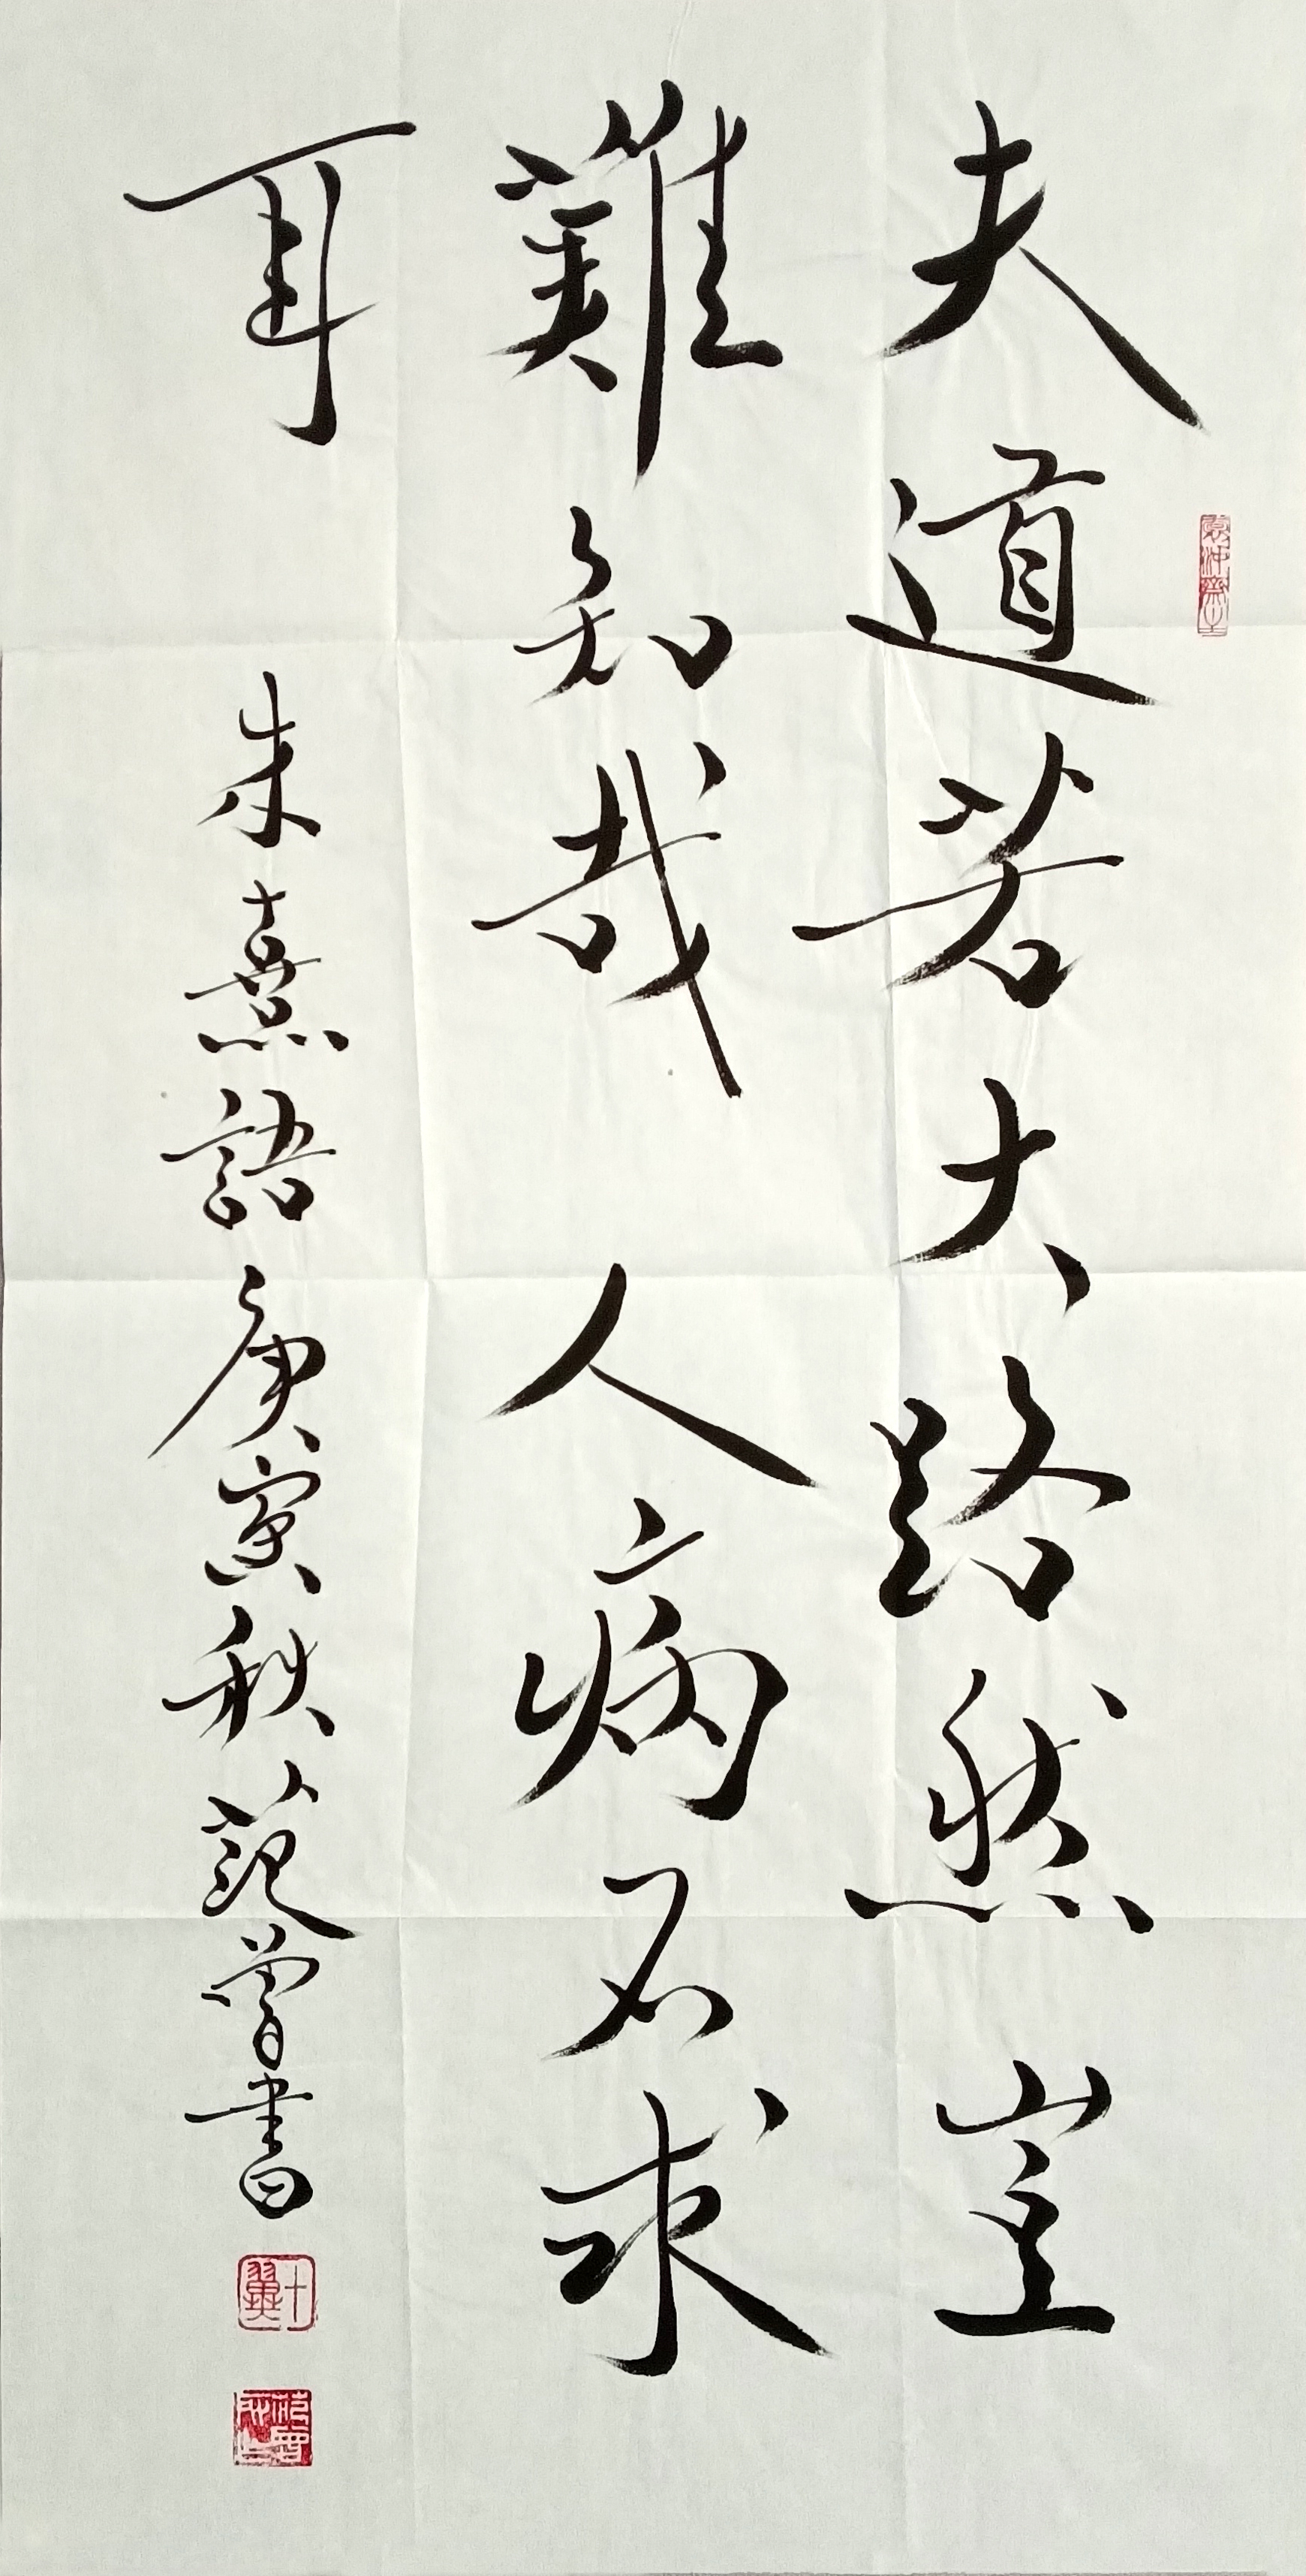 夫道若大路然豈
難知哉人病不求
耳朱熹語庚寅秋范曾書
十翼